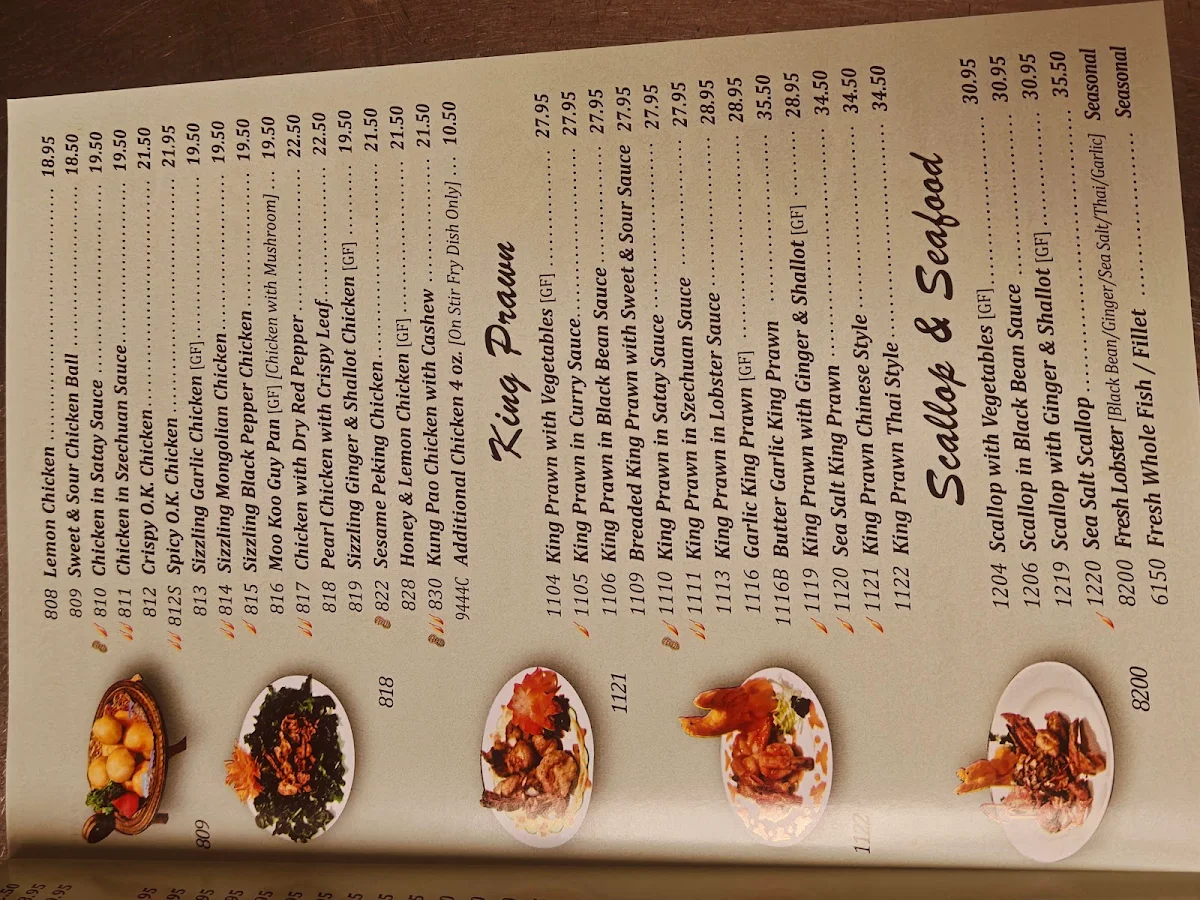 808 Lemon Chicken 18.95
809 Sweet & Sour Chicken Ball 18.50
810 Chicken in Satay Sauce 19.50
811 Chicken in Szechuan Sauce 19.50
812 Crispy O.K. Chicken 21.50
812S Spicy O.K. Chicken 21.95
813 Sizzling Garlic Chicken [GF] 19.50
814 Sizzling Mongolian Chicken 19.50
815 Sizzling Black Pepper Chicken 19.50
816 Moo Koo Guy Pan [GF] [Chicken with Mushroom] 19.50
817 Chicken with Dry Red Pepper 22.50
818 Pearl Chicken with Crispy Leaf 22.50
819 Sizzling Ginger & Shallot Chicken [GF] 19.50
822 Sesame Peking Chicken 21.50
828 Honey & Lemon Chicken [GF] 21.50
830 Kung Pao Chicken with Cashew 21.50
9444C Additional Chicken 4 oz. [On Stir Fry Dish Only] 10.50
King Prawn
1104 King Prawn with Vegetables [GF] 27.95
1105 King Prawn in Curry Sauce 27.95
1106 King Prawn in Black Bean Sauce 27.95
1109 Breaded King Prawn with Sweet & Sour Sauce 27.95
1110 King Prawn in Satay Sauce 27.95
1111 King Prawn in Szechuan Sauce 27.95
1113 King Prawn in Lobster Sauce 28.95
1116 Garlic King Prawn [GF] 28.95
1116B Butter Garlic King Prawn 35.50
1119 King Prawn with Ginger & Shallot [GF] 28.95
1120 Sea Salt King Prawn 34.50
1121 King Prawn Chinese Style 34.50
1122 King Prawn Thai Style 34.50
Scallop & Seafood
1204 Scallop with Vegetables [GF] 30.95
1206 Scallop in Black Bean Sauce 30.95
1219 Scallop with Ginger & Shallot [GF] 30.95
1220 Sea Salt Scallop 35.50
8200 Fresh Lobster [Black Bean/Ginger/Sea Salt/Thai/Garlic] Seasonal
6150 Fresh Whole Fish / Fillet Seasonal
809
818
1121
1122
8200